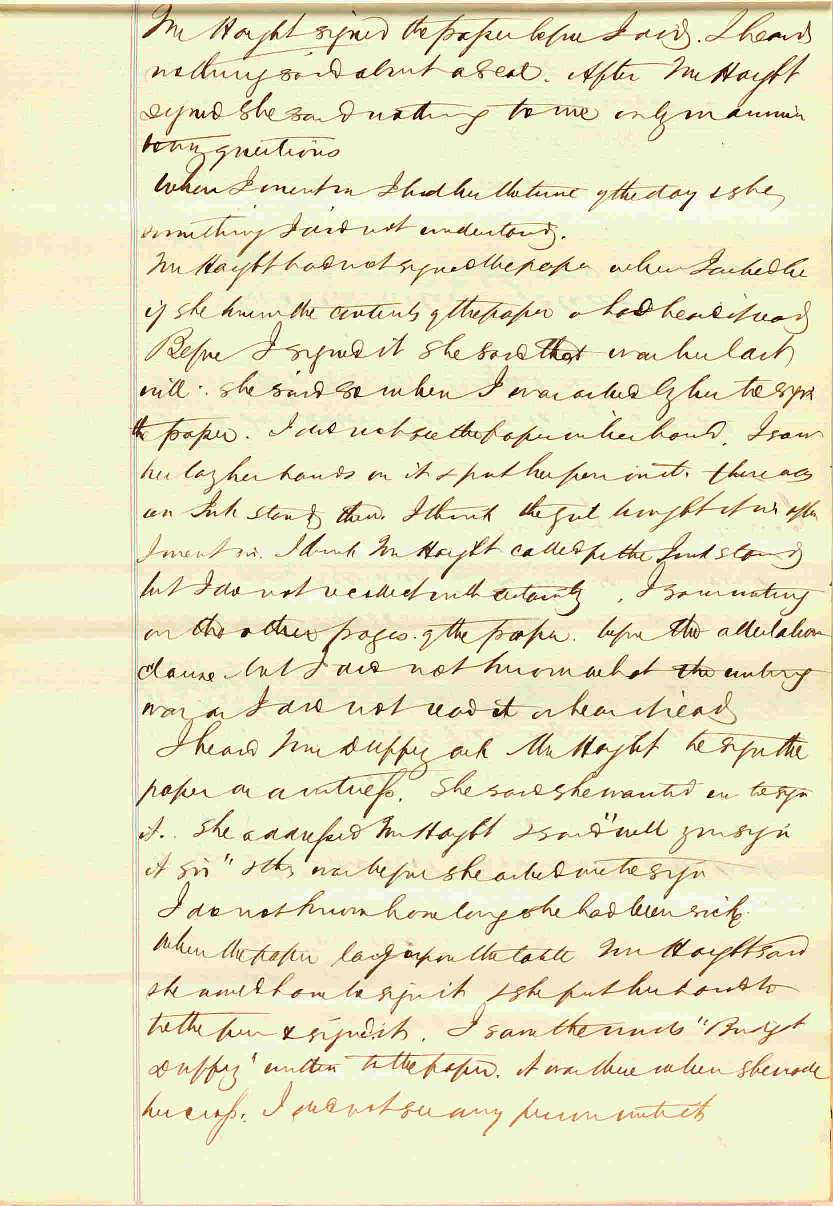 Mr Haight signed the paper before I did. I heard
nothing said about a seal. After Mr Haight
signed she said nothing to me only in answer
to my questions
When I went in I bid her the time of the day & she
something I did not understand.
Mr Haight had not signed the paper when I asked her
if she knew the contents of the paper or had heard it read
Before I signed it she said that was her last
will. she said so when I was asked by her to sign
the paper. I did not see the paper in her hand. I saw
her lay her hands on it & put her pen on it. there was
an Ink stand there. I think the girl brought it in after
I went in. I think Mr Haight called for the Ink stand
but I do not recollect with certainty. I saw writing
on the other pages of the paper before the attestation
clause but I did not know what the writing
was as I did not read it or hear it read
I heard Mrs Duffey ask Mr Haight to sign the
paper as a witness. She said she wanted him to sign
it. She addressed Mr Haight & said "will you sign
it sir" & this was before she asked me to sign
I do not know how long she had been sick.
When the paper lay upon the table Mr Haight said
she would have to sign it & she put her hand to
to the pen & signed it. I saw the words "Bridget
Duffey" written to the paper. it was there when she made
her cross. I did not see any person write it